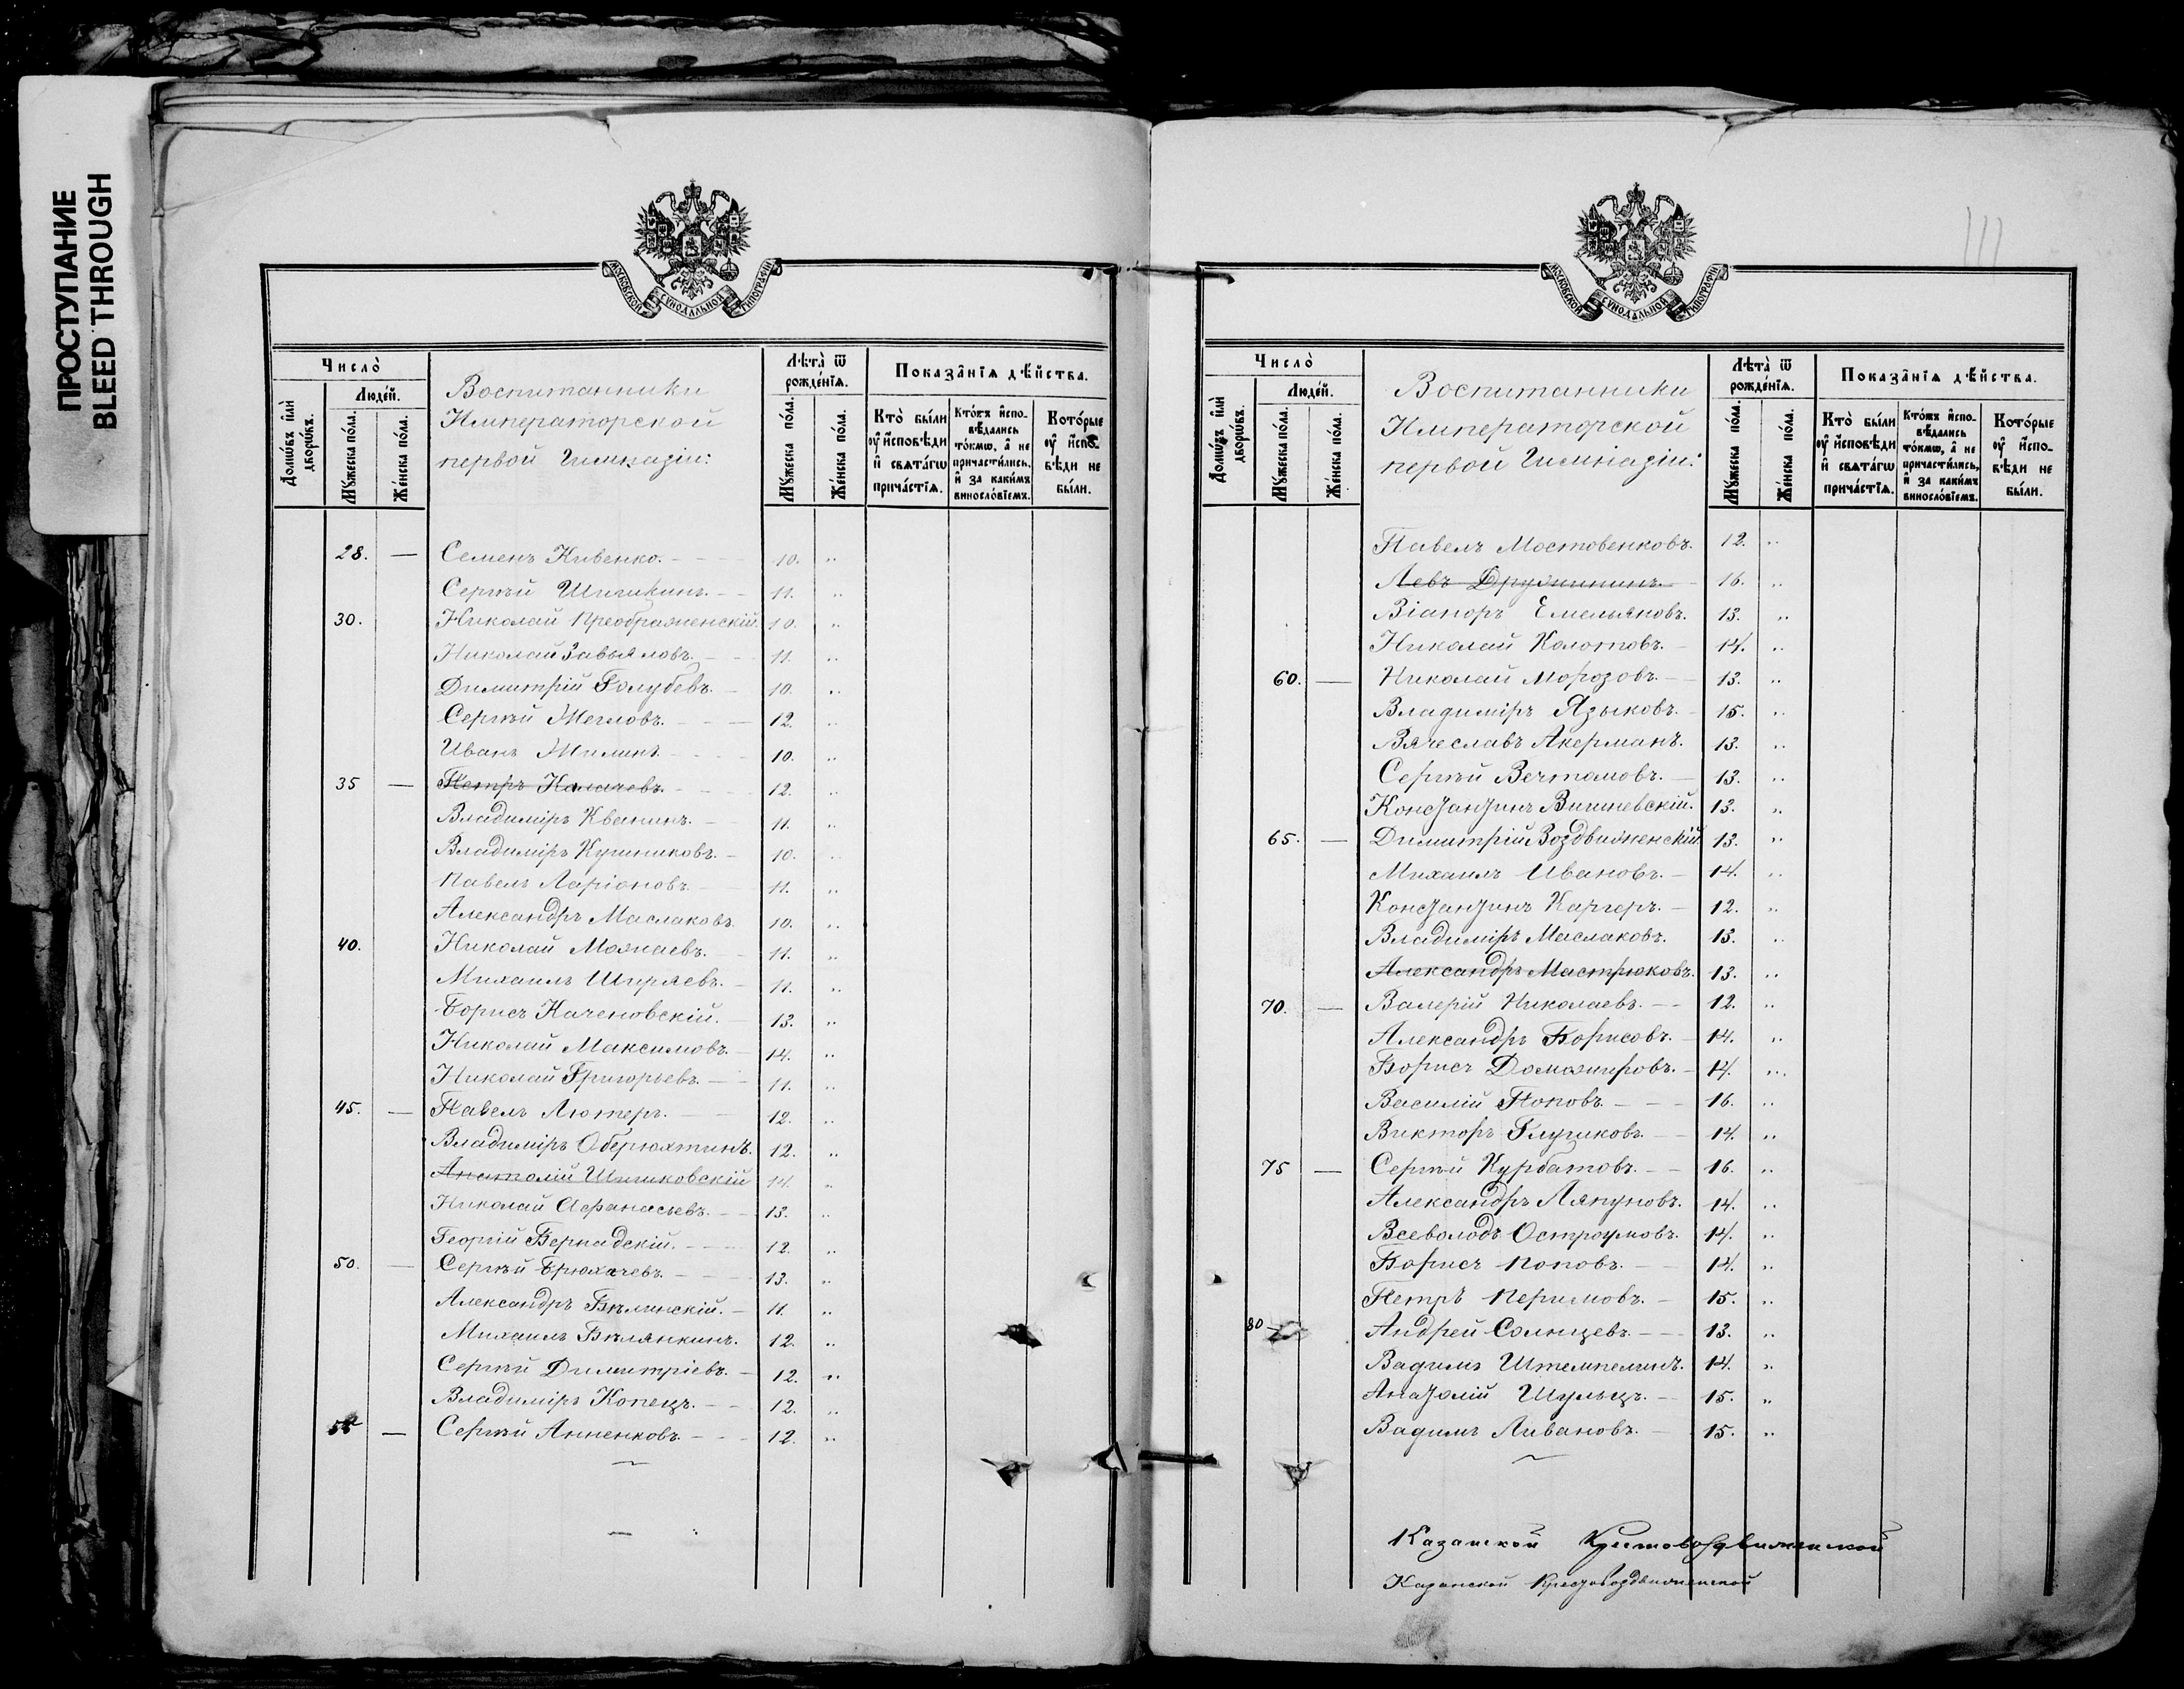 ПРОСТУПАНИЕ
BLEED THROUGH
МОСКОВСКОЙ СѴНОДАЛЬНОЙ ТИПОГРАФІИ
Число̀
Домѡ́въ и҆лѝ дворѡ́въ.
Люде́й.
Мꙋ́жеска по́ла.
Же́нска по́ла.
Воспитанники
Императорской
первой Гимназіи:
Лѣ́та ѿ рожде́нїѧ.
Мꙋ́жеска по́ла.
Же́нска по́ла.
Показа̑нїѧ дѣ́йства.
Кто̀ бы́ли ᲂу҆ и҆́сповѣди и҆ свѧта́гѡ прича́стїѧ.
Кто́жъ и҆спо-
вѣ́дались
то́кмѡ, а҆ не
причасти́лись,
и҆ за каки́мъ
виносло́вїемъ.
Кото́рые ᲂу҆ и҆́спо-
вѣди не бы́ли.
28. — Семенъ Кивенко. 10. „
Сергѣй Шишкинъ. 11. „
30. Николай Преображенскій. 10. „
Николай Завьяловъ. 11. „
Димитрій Голубевъ. 10. „
Сергѣй Жегловъ. 12. „
Иванъ Жилинъ. 10. „
35 — Петръ Калачевъ. 12. „
Владиміръ Кванинъ. 11. „
Владиміръ Кушниковъ. 10. „
Павелъ Ларіоновъ. 11. „
Александръ Маслаковъ. 10. „
40. Николай Можаевъ. 11. „
Михаилъ Ширяевъ. 11. „
Борисъ Каченовскій. 13. „
Николай Максимовъ. 14. „
Николай Григорьевъ. 11. „
45. — Павелъ Лютеръ. 12. „
Владиміръ Оберюхтинъ. 12. „
Анатолій Шишковскій 14. „
Николай Афанасьевъ. 13. „
Георгій Бернадскій. 12. „
50. — Сергѣй Брюхачевъ. 13. „
Александръ Бѣлинскій. 11. „
Михаилъ Бѣлянкинъ. 12. „
Сергѣй Димитріевъ. 12. „
Владиміръ Копецъ. 12. „
55 — Сергѣй Анненковъ. 12. „
111
МОСКОВСКОЙ СѴНОДАЛЬНОЙ ТИПОГРАФІИ
Число̀
Домѡ́въ и҆лѝ дворѡ́въ.
Люде́й.
Мꙋ́жеска по́ла.
Же́нска по́ла.
Воспитанники
Императорской
первой Гимназіи:
Лѣ́та ѿ рожде́нїѧ.
Мꙋ́жеска по́ла.
Же́нска по́ла.
Показа̑нїѧ дѣ́йства.
Кто̀ бы́ли ᲂу҆ и҆́сповѣди и҆ свѧта́гѡ прича́стїѧ.
Кто́жъ и҆спо-
вѣ́дались
то́кмѡ, а҆ не
причасти́лись,
и҆ за каки́мъ
виносло́вїемъ.
Кото́рые ᲂу҆ и҆́спо-
вѣди не бы́ли.
Павелъ Мостовенковъ. 12. „
Левъ Дружининъ. 16. „
Віаноръ Емельяновъ. 13. „
Николай Колотовъ. 14. „
60. — Николай Морозовъ. 13. „
Владиміръ Языковъ. 15. „
Вячеславъ Акерманъ. 13. „
Сергѣй Вечтомовъ. 13. „
Константинъ Вишневскій. 13. „
65. — Димитрій Воздвиженскій 13. „
Михаилъ Ивановъ. 14. „
Константинъ Каргеръ. 12. „
Владиміръ Маслаковъ. 13. „
Александръ Мастрюковъ. 13. „
70. — Валерій Николаевъ. 12. „
Александръ Борисовъ. 14. „
Борисъ Доможировъ. 14. „
Василій Поповъ. 16. „
Викторъ Глушковъ. 14. „
75 — Сергѣй Курбатовъ. 16. „
Александръ Ляпуновъ. 14. „
Всеволодъ Остроумовъ. 14. „
Борисъ Поповъ. 14. „
Петръ Перимовъ. 15. „
80 — Андрей Солнцевъ. 13. „
Вадимъ Штемпелинъ. 14. „
Анатолій Шульцъ. 15. „
Вадимъ Ливановъ. 15. „
Казанской Крестовоздвиженской
Казанской Крестовоздвиженской